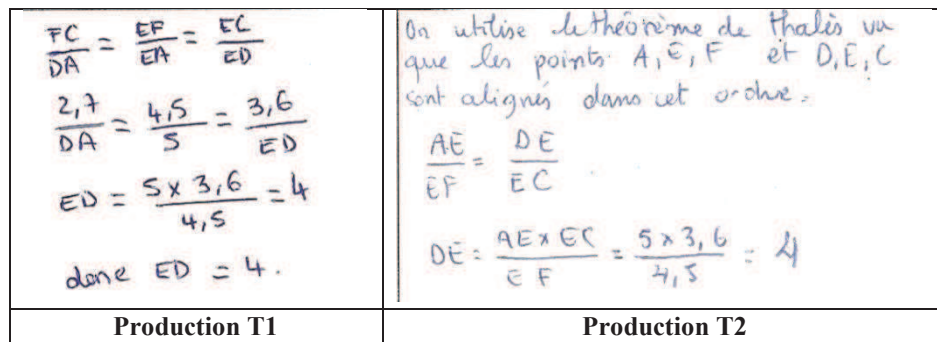 FC/DA = EF/EA = EC/ED
2,7/DA = 4,5/5 = 3,6/ED
ED = 5 x 3,6/4,5 = 4
donc ED = 4.
Production T1
On utilise le théorème de thalès vu
que les points A, E, F et D, E, C
sont alignés dans cet ordre.
AE/EF = DE/EC .
DE = AE x EC/EF = 5 x 3,6/4,5 = 4
Production T2